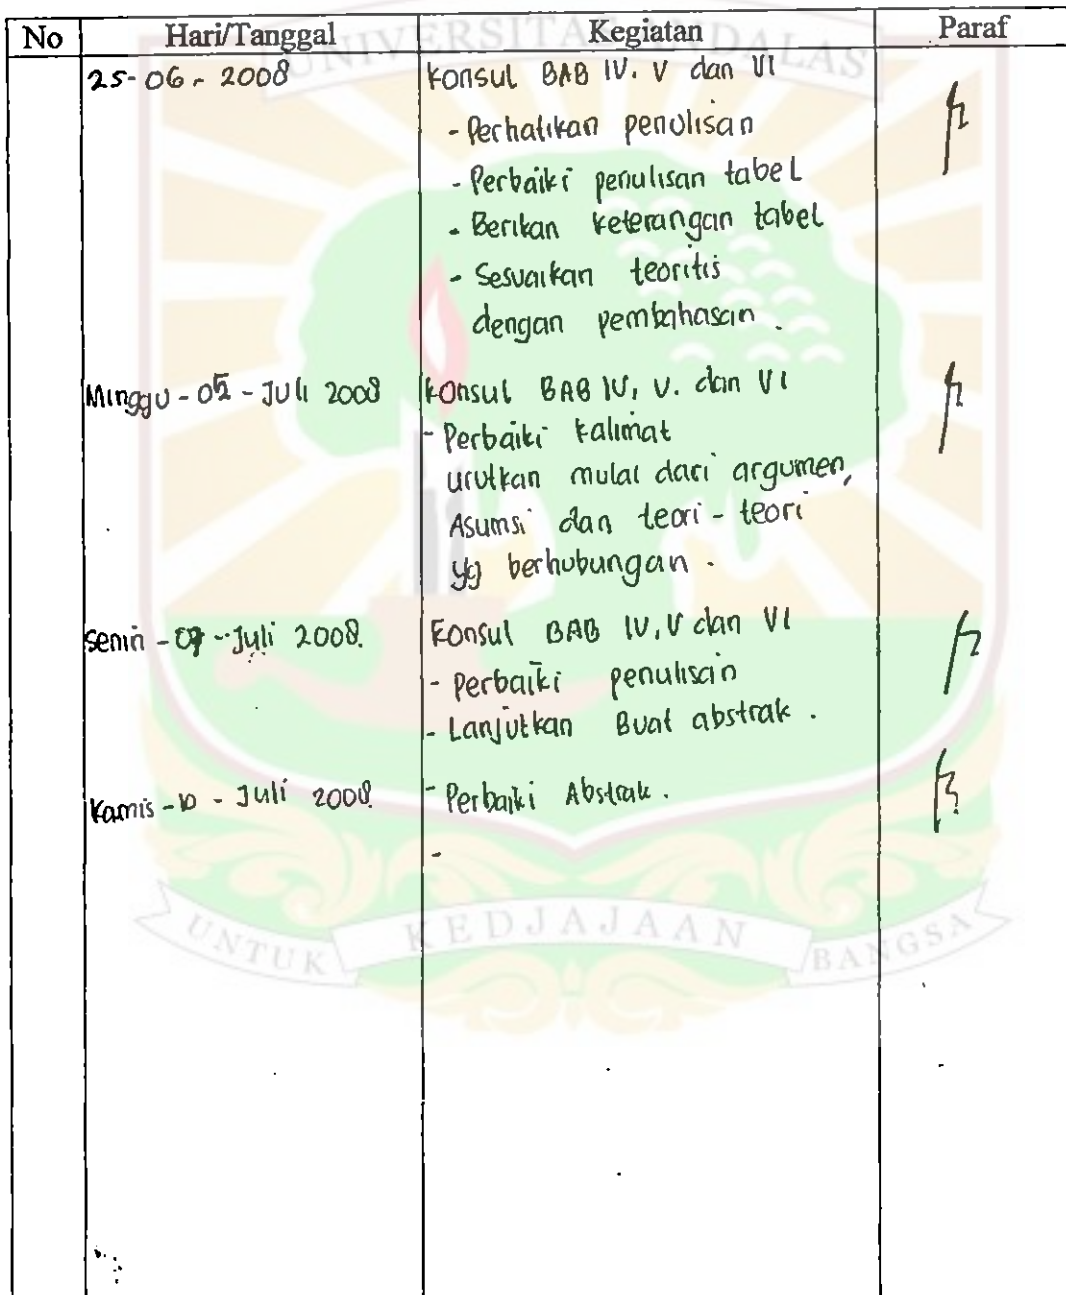 No Hari/Tanggal Kegiatan Paraf
UNIVERSITAS ANDALAS
25-06-2008 Konsul BAB IV. V dan VI
- Perhatikan penulisan
- Perbaiki penulisan tabel
- Berikan keterangan tabel
- Sesuaikan teoritis
dengan pembahasan.
Minggu - 05 - Juli 2008 Konsul BAB IV, V. dan VI
- Perbaiki kalimat
urutkan mulai dari argumen,
Asumsi dan teori - teori
yg berhubungan.
Senin - 07 - Juli 2008. Konsul BAB IV, V dan VI
- Perbaiki penulisan
- Lanjutkan Buat abstrak.
Kamis - 10 - Juli 2008. - Perbaiki Abstrak.
-
UNTUK KEDJAJAAN BANGSA